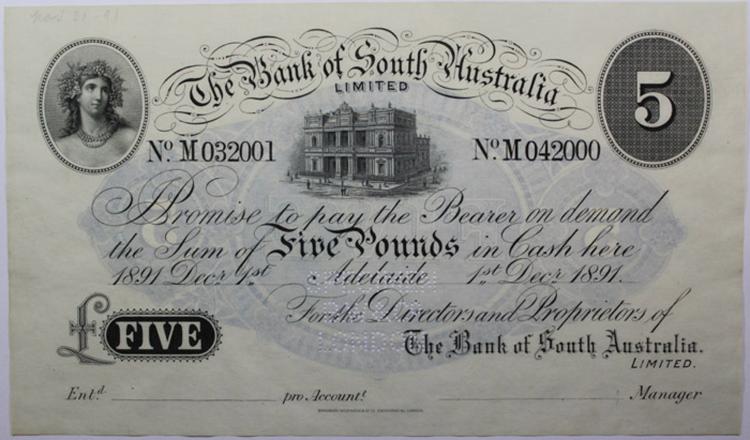 Nov 21-91
The Bank of South Australia
LIMITED
5
No. M032001 No. M042000
Promise to pay the Bearer on demand
the Sum of Five Pounds in Cash here
1891 Decr. 1st. Adelaide 1st. Decr. 1891.
For the Directors and Proprietors of
£ FIVE
The Bank of South Australia.
LIMITED.
Ent.d pro Account.t Manager